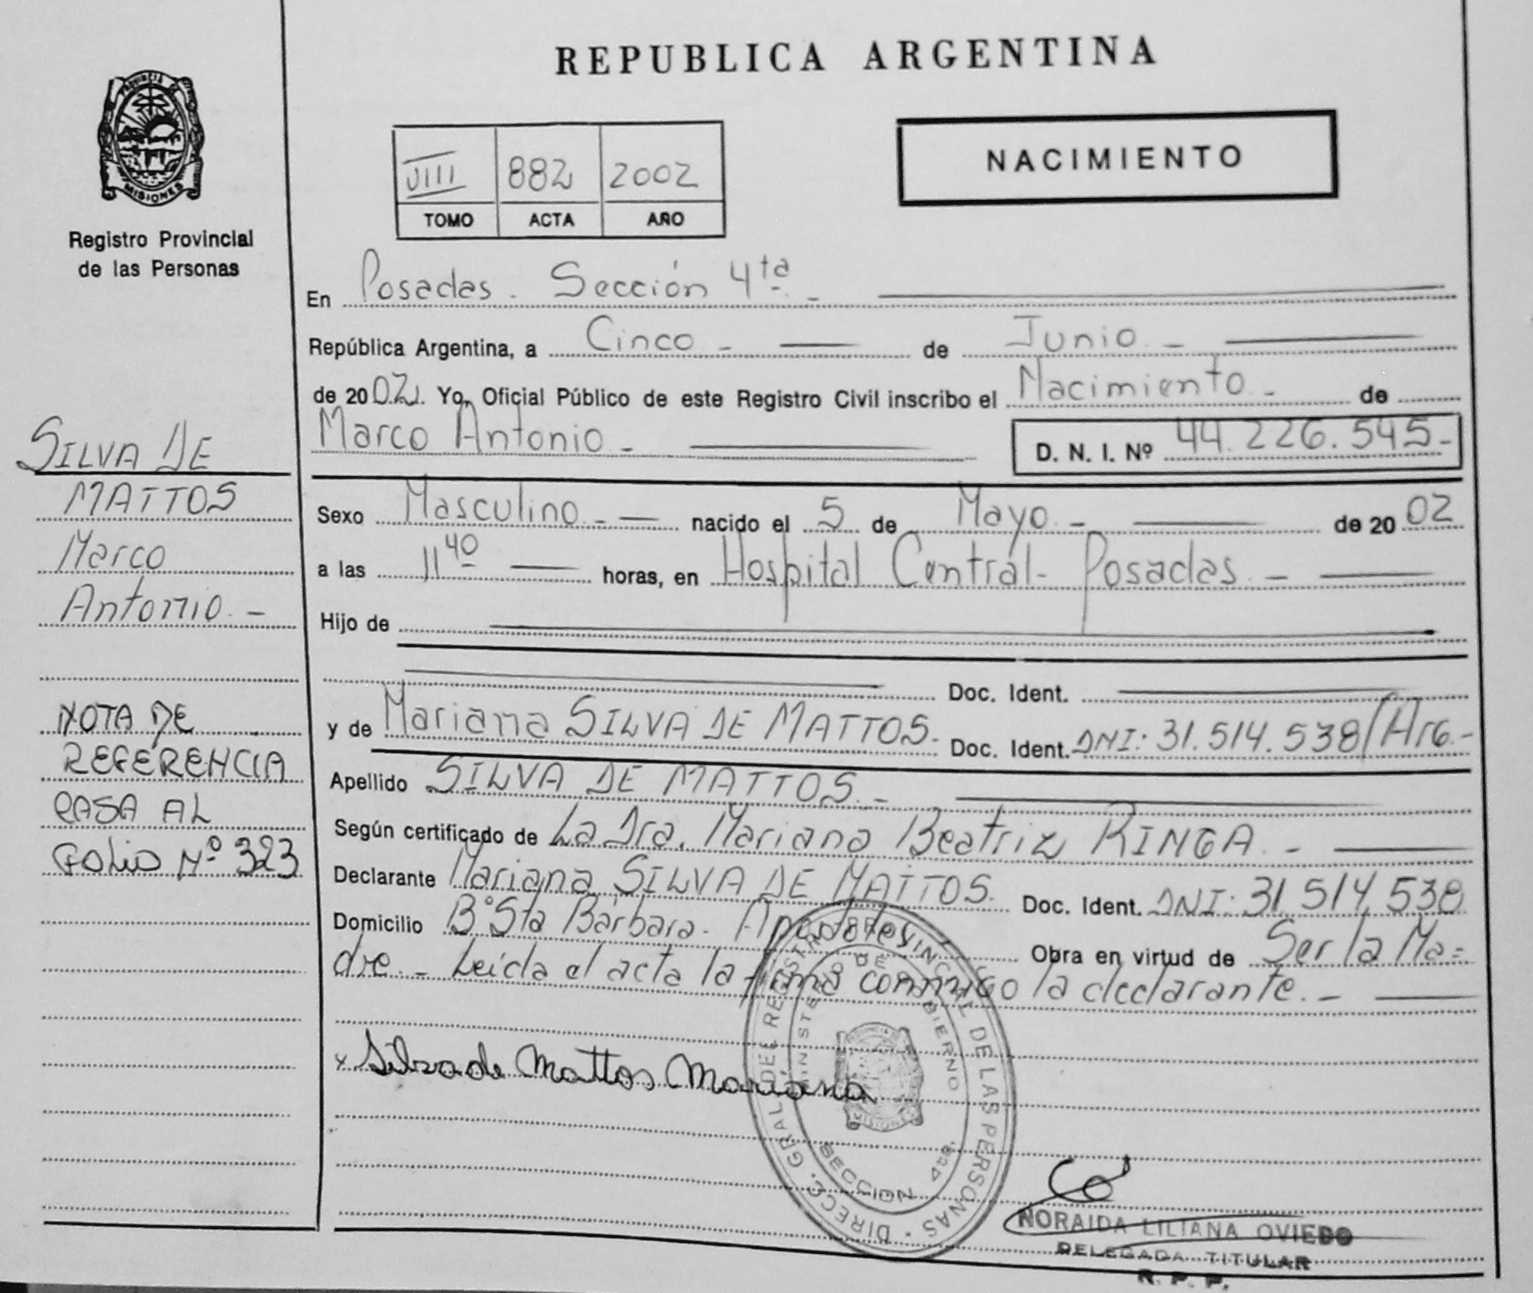 REPUBLICA ARGENTINA
PROVINCIA DE
MISIONES
Registro Provincial
de las Personas
VIII 882 2002
TOMO ACTA AÑO
NACIMIENTO
En Posadas - Sección 4ta -
República Argentina, a Cinco - de Junio -
de 2002. Yo, Oficial Público de este Registro Civil inscribo el Nacimiento - de
Marco Antonio - D. N. I. Nº 44.226.545-
Sexo Masculino - nacido el 5 de Mayo - de 2002
a las 11 40 horas, en Hospital Central - Posadas -
Hijo de
Doc. Ident.
y de Mariana SILVA DE MATTOS - Doc. Ident. DNI: 31.514.538/Arg.-
Apellido SILVA DE MATTOS -
Según certificado de La Dra. Mariana Beatriz RINGA -
Declarante Mariana SILVA DE MATTOS. Doc. Ident. DNI: 31.514.538
Domicilio Bº Sta Bárbara - Apóstoles Obra en virtud de Ser la Ma=
dre - Leída el acta la firma conmigo la declarante. -
x Silva de Mattos Mariana
SILVA DE
MATTOS
Marco
Antonio -
NOTA DE
REFERENCIA
PASA AL
FOLIO Nº 323
DIRECC. GRAL. DEL REGISTRO PROVINCIAL DE LAS PERSONAS
MINISTERIO DE GOBIERNO
MISIONES
SECCION 4ta.
NORAIDA LILIANA OVIEDO
DELEGADA TITULAR
R. P. P.